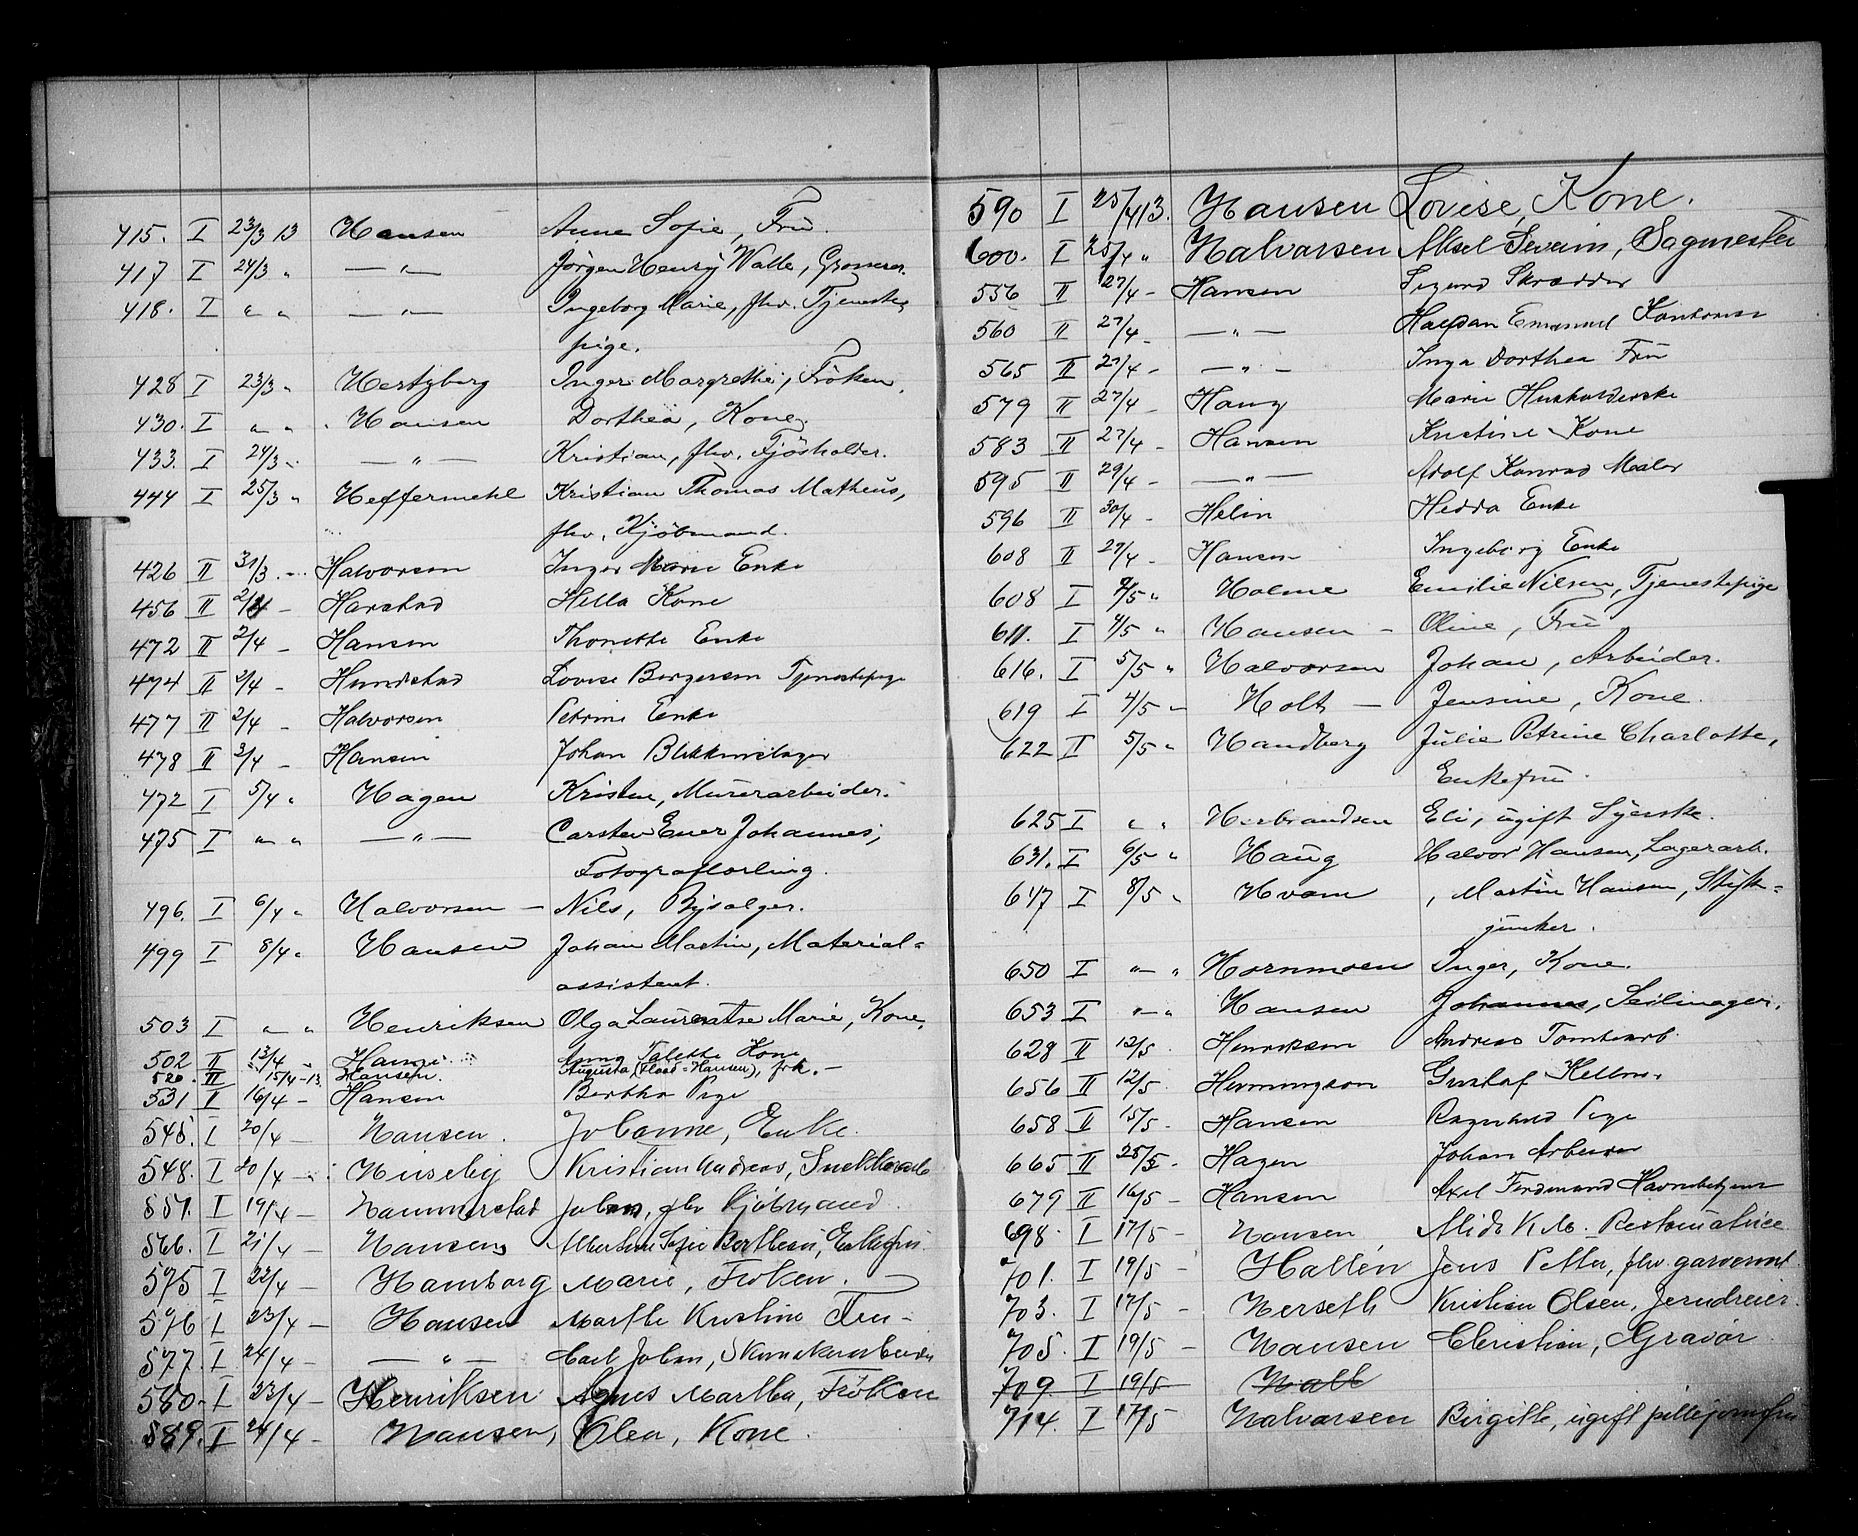 415. I 23/3 13 Hansen Anne Sofie, Fru.
417 I 24/3 " — " — Jörgen Henry Walle, Grosserer.
418. I " " — " — Ingeborg Marie, fhv. Tjeneste
pige.
428 I 23/3 " Hertzberg Inger Margrethe, Fröken.
430. I " " Hansen Dorthea, Kone.
433. I 24/3 " — " — Kristian, fhv. Fjösholder.
444 I 25/3 " Heffermehl Kristian Thomas Matheus,
fhv. Kjöbmand.
426 II 31/3 - Halvorsen Inger Marie Enke
456 II 2/4 - Harstad Hella Kone
472 II 2/4 - Hansen Thonette Enke
474 II 2/4 - Hundstad Lovise Borgersen Tjenestepige
477 II 2/4 - Halvorsen Petrine Enke
478 II 3/4 - Hansen Johan Blikkenslager
472 I 5/4 " Hagen Kristen, Murerarbeider.
475 I " " — " — Carsten Ener Johannes,
Fotograflærling.
496. I 6/4 " Halvorsen — Nils, Bijsælger.
499 I 8/4 " Hansen Johan Martin, Material=
assistent.
503 I " " Henriksen Olga Laurentse Marie, Kone,
502 II 13/4 - Hansen Anna Talette Kone
520. III 15/4-13 Hansen. Augusta (Flood-Hansen), frk. —
531 II 16/4 - Hansen Bertha Pige
545. I 20/4 — Hansen. Johanne, Enke.
548. I 20/4 — Huseby Kristian Andreas, Snekkerarb
551. I 19/4 — Hammerstad Johan, fhv Kjöbmand.
566. I 21/4 — Hansen Albertine Sofie Berthea, Enkefru.
575 I 22/4 — Hamborg Marie, Fröken. —
576 I 23/4 — Hansen Marthe Kristine Fru -
577. I 24/4 — — " — Carl Johan,
580. I 23/4 — Henriksen Agnes Martha, Fröken
589. I 24/4 — Hansen, Olea, Kone.
590 I 25/4 13. Hansen Lovise, Kone.
600. I 25/4 " Halvorsen Aksel Severin, Sagmester
556 II 27/4 - Hansen Sigurd Skrædder
560 II 27/4 - — " — Halfdan Emanuel Kontorist
565 II 27/4 - — " — Inga Dorthea Fru
579 II 27/4 - Haug Marie Husholderske
583 II 27/4 - Hansen Kristine Kone
595 II 29/4 - — " — Adolf Konrad Maler
596 II 30/4 - Helin Hedda Enke
608 II 29/4 - Hansen Ingeborg Enke
608 I 2/5 " Holme Emilie Nilsen, Tjenestepige
611. I 4/5 " Hansen - Oline, Fru
616. I 5/5 " Halvorsen Johan, Arbeider.
619 I 4/5 " Holt — Jensine, Kone.
622 I 5/5 " Handberg Julie Petrine Charlotte,
Enkefru.
625 I " " Herbrandsen Eli, ugift Syerske.
631. I 6/5 " Haug Halvor Hansen, Lagerarb.
647 I 8/5 " Hvam , Martin Hansen, Stift=
junker.
650 I " " Hornmoen Inger, Kone.
653 I " " Hansen Johannes, Seilmager.
628 II 12/5. Henriksen Andreas Tomtearb.
656 II 12/5. Henningson Gustaf Kellner
658 II 15/5. Hansen Ragnhild Pige
665 II 28/5 - Hagen Johan Arbeider
679 II 16/5 - Hansen Axel Ferdinand Havnebetjent
698. I 17/5 - Hansen Alida K. M. Restauratrice
701. I 19/5 - Hallén Jens Petter, fhv. garverm.
703. I 17/5 - Herseth Kristian Olsen, Jerndreier.
705. I 19/5 - Hansen Christian, Gravör.
709. I 19/5 Hall
714. I 17/5 Halvorsen Birgitte, ugift pillejomfru